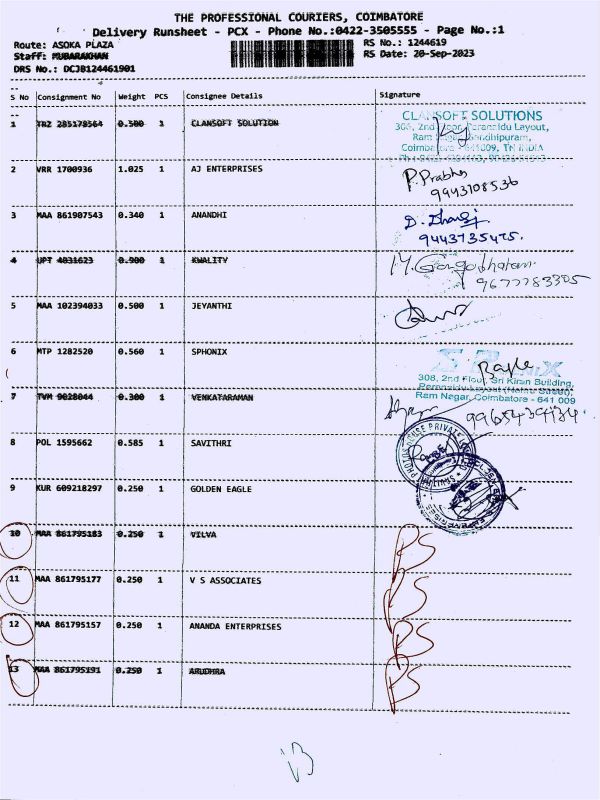 THE PROFESSIONAL COURIERS, COIMBATORE
Delivery Runsheet - PCX - Phone No.:0422-3505555 - Page No.:1
Route: ASOKA PLAZA RS No.: 1244619
Staff: MUBARAKHAN RS Date: 20-Sep-2023
DRS No.: DCJB124461901
S No Consignment No Weight PCS Consignee Details Signature
1 TRZ 285178564 0.500 1 CLANSOFT SOLUTION
CLANSOFT SOLUTIONS
306, 2nd Floor, Peranaidu Layout,
Ram Nagar, Gandhipuram,
Coimbatore - 641009, TN INDIA
2 VRR 1700936 1.025 1 AJ ENTERPRISES P. Prabhu
9443108536
3 MAA 861907543 0.340 1 ANANDHI
9443735475.
4 UPT 4031623 0.900 1 KWALITY
9677783305
5 MAA 102394033 0.500 1 JEYANTHI
6 MTP 1282520 0.560 1 SPHONIX
308, 2nd Floor, Sri Kiran Building,
Ram Nagar, Coimbatore - 641 009
7 TVM 9028044 0.300 1 VENKATARAMAN
8 POL 1595662 0.585 1 SAVITHRI
9 KUR 609218297 0.250 1 GOLDEN EAGLE
10 MAA 861795183 0.250 1 VILVA RS
11 MAA 861795177 0.250 1 V S ASSOCIATES RS
12 MAA 861795157 0.250 1 ANANDA ENTERPRISES RS
13 MAA 861795191 0.250 1 ARUDHRA RS
13